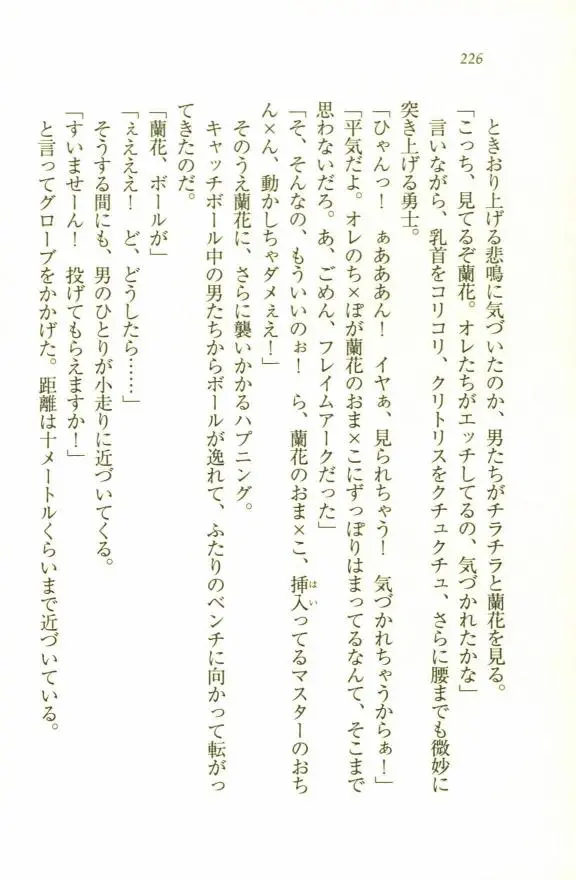 226
ときおり上げる悲鳴に気づいたのか、男たちがチラチラと蘭花を見る。
「こっち、見てるぞ蘭花。オレたちがエッチしてるの、気づかれたかな」
言いながら、乳首をコリコリ、クリトリスをクチュクチュ、さらに腰までも微妙に
突き上げる勇士。
「ひゃんっ！　ぁあああん！　イヤぁ、見られちゃう！　気づかれちゃうからぁ！」
「平気だよ。オレのち×ぽが蘭花のおま×こにずっぽりはまってるなんて、そこまで
思わないだろ。あ、ごめん、フレイムアークだった」
「そ、そんなの、もういいのぉ！　ら、蘭花のおま×こ、挿入ってるマスターのおち
ん×ん、動かしちゃダメぇえ！」
そのうえ蘭花に、さらに襲いかかるハプニング。
キャッチボール中の男たちからボールが逸れて、ふたりのベンチに向かって転がっ
てきたのだ。
「蘭花、ボールが」
「ぇえええ！　ど、どうしたら……」
そうする間にも、男のひとりが小走りに近づいてくる。
「すいませーん！　投げてもらえますか！」
と言ってグローブをかかげた。距離は十メートルくらいまで近づいている。